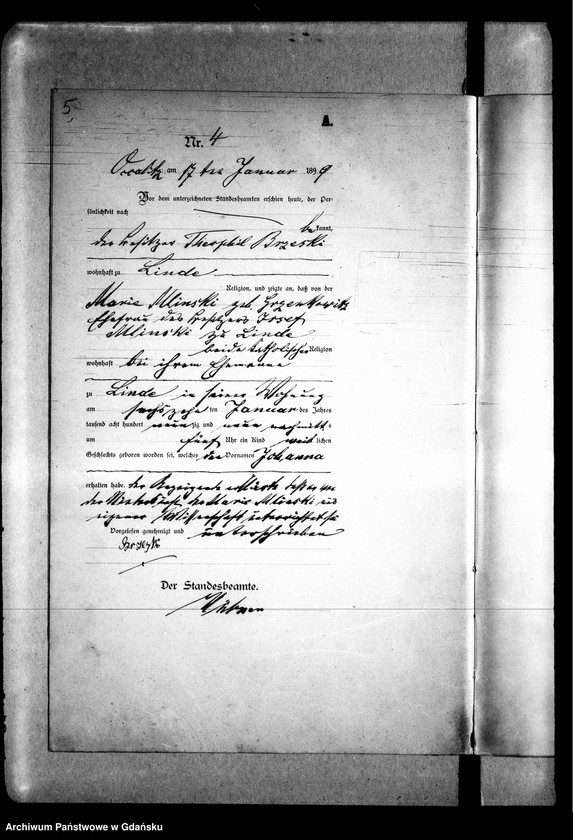 5.
A.
Nr. 4
am 17ten Januar 1899
Vor dem unterzeichneten Standesbeamten erschien heute, der Per-
sönlichkeit nach
bekannt,
der Besitzer Theophil Brzeski
wohnhaft zu Linde
Religion, und zeigte an, daß von der
Marie Mlinski geb. Grzenkowitz
Ehefrau des Besitzers Josef
Mlinski zu Linde
beide katholischer Religion
wohnhaft bei ihrem Ehemanne
zu Linde in seiner Wohnung
am sechszehn ten Januar des Jahres
tausend acht hundert neunzig und neun nachmittags
um fünf Uhr ein Kind weiblichen
Geschlechts geboren worden sei, welches den Vornamen Johanna
erhalten habe. der Anzeigende erklärte daß er von
der Niederkunft der Marie Mlinski aus
eigener Wissenschaft unterrichtet sei
Vorgelesen, genehmigt und unterschrieben
Der Standesbeamte.
Archiwum Państwowe w Gdańsku